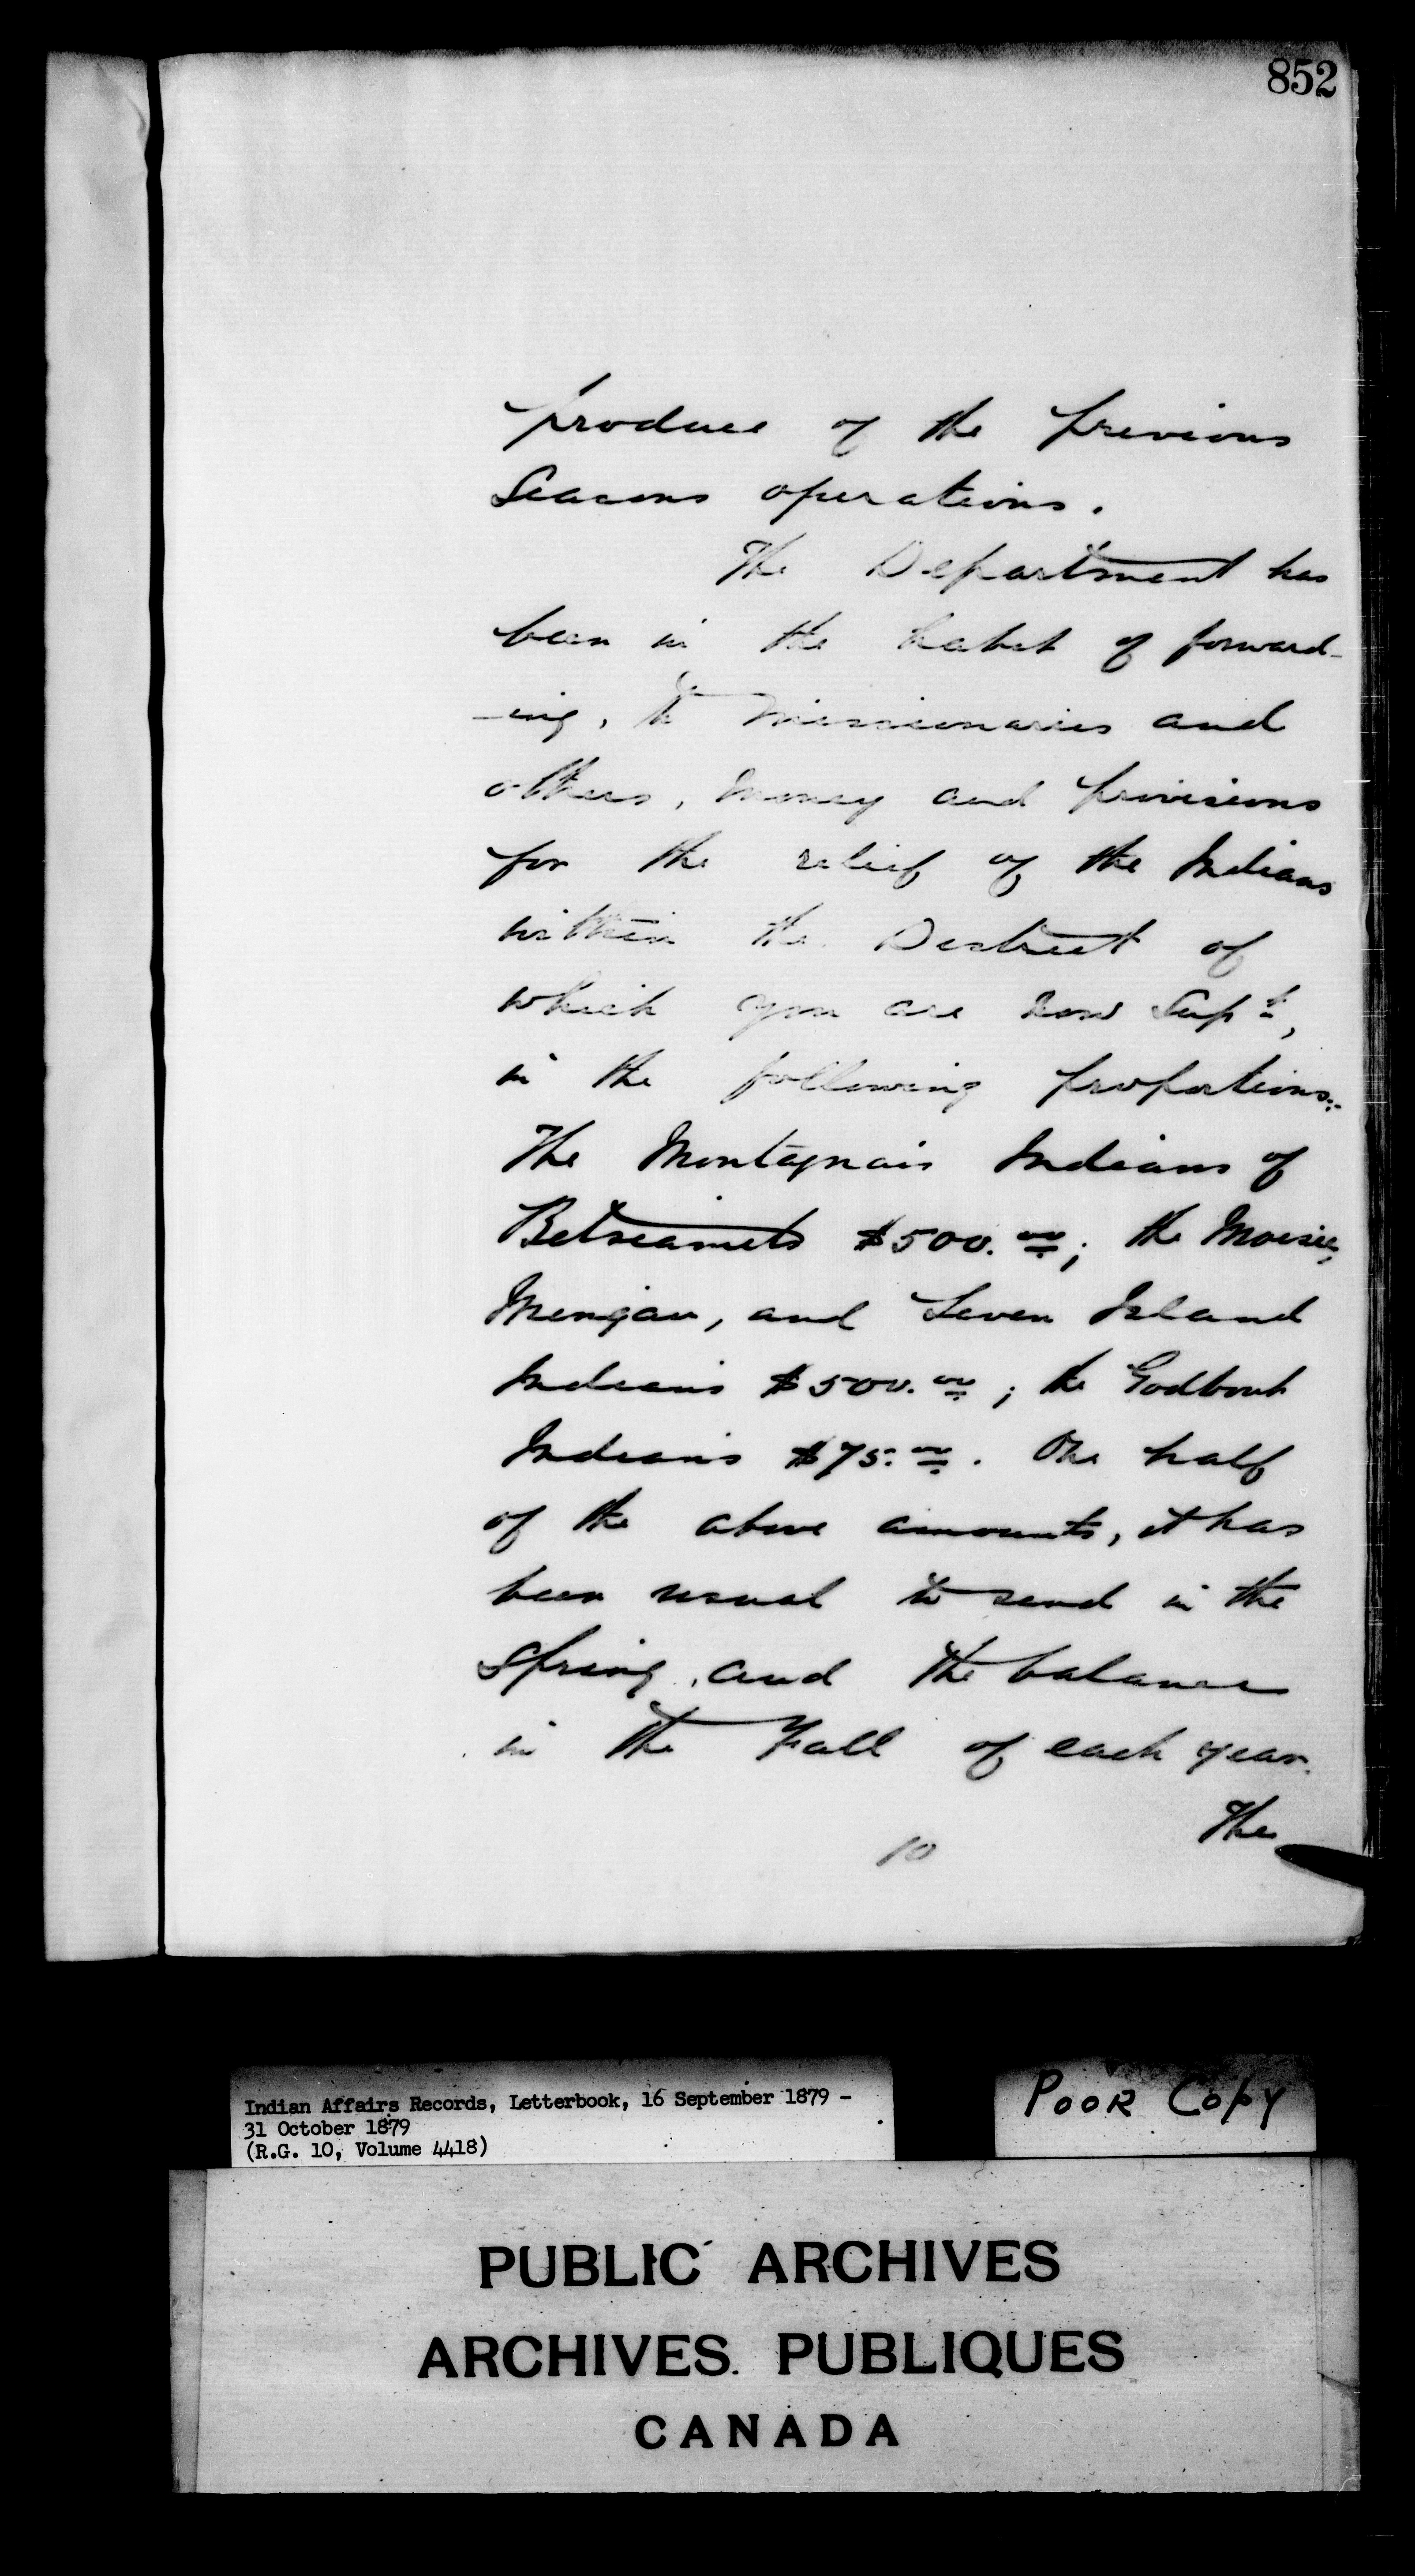 852
produce of the previous
Seasons operations.
The Department has
been in the habit of forward-
-ing, to Missionaries and
others, money and provisions
for the relief of the Indians
within the District of
which you are now Supt,
in the following proportions:-
The Montagnais Indians of
Betseamits $500.00; the Moisie,
Mingan, and Seven Island
Indians $500.00; the Godbout
Indians $75.00. One half
of the above amounts, it has
been usual to send in the
Spring, and the balance
in the Fall of each year.
The
10
Indian Affairs Records, Letterbook, 16 September 1879 -
31 October 1879
(R.G. 10, Volume 4418)
POOR COPY
PUBLIC ARCHIVES
ARCHIVES PUBLIQUES
CANADA